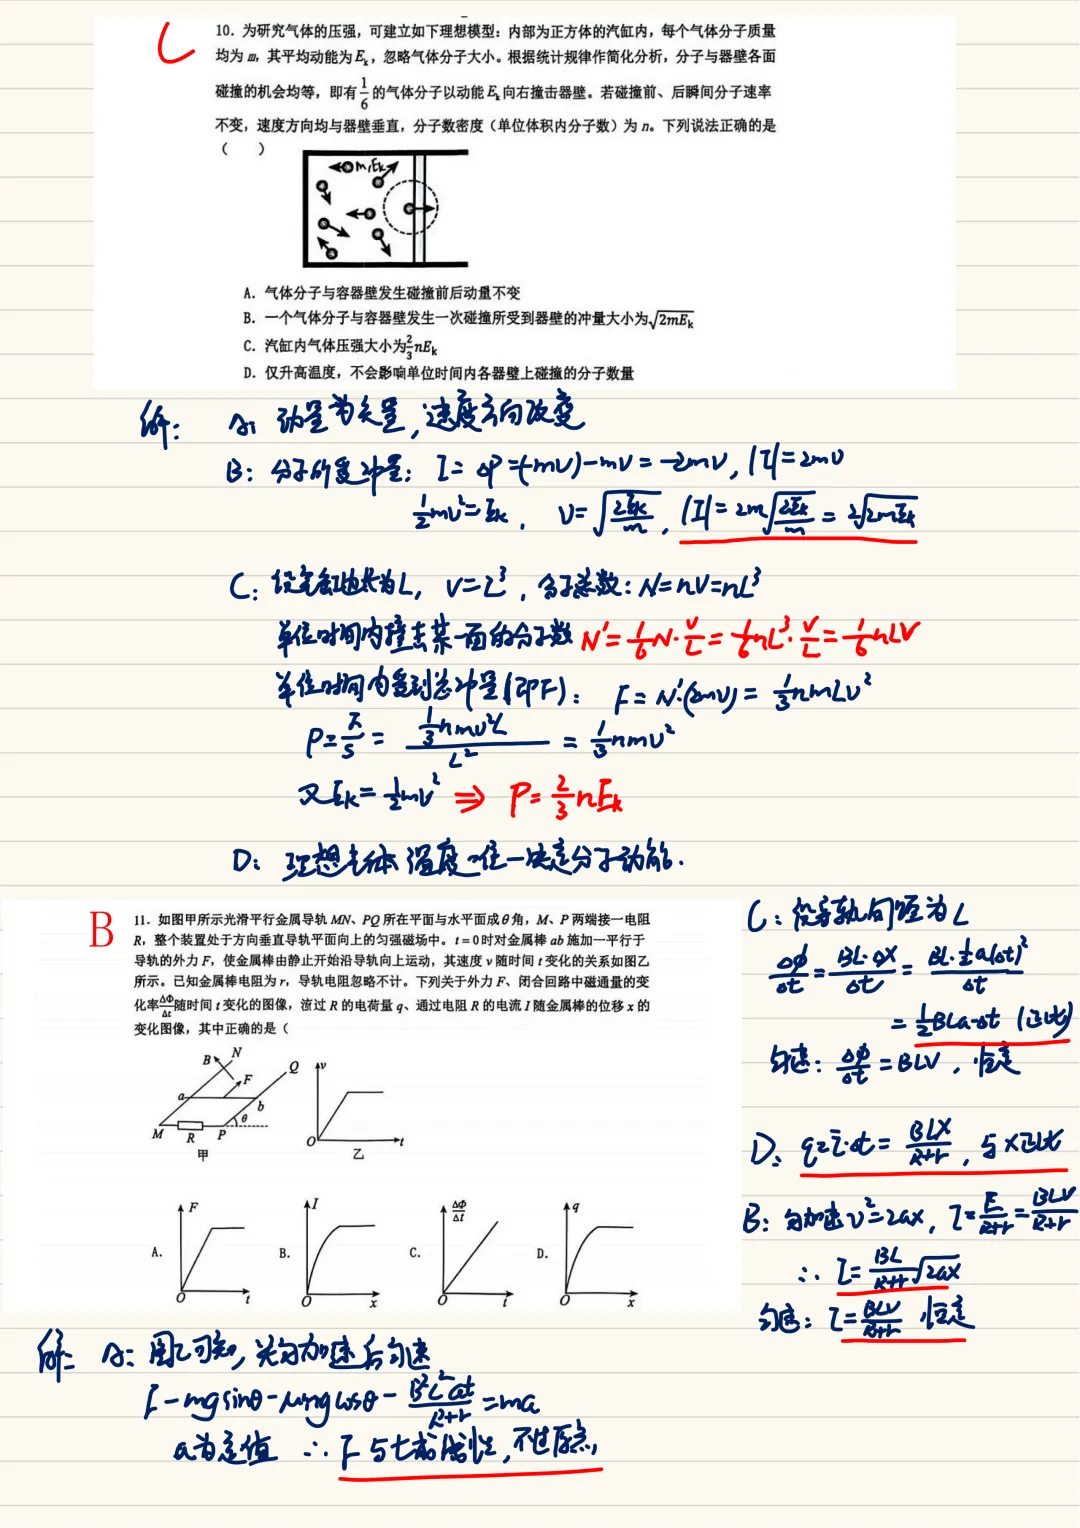 C
10. 为研究气体的压强，可建立如下理想模型：内部为正方体的汽缸内，每个气体分子质量
均为 m，其平均动能为 Eₖ，忽略气体分子大小。根据统计规律作简化分析，分子与器壁各面
碰撞的机会均等，即有 1/6 的气体分子以动能 Eₖ 向右撞击器壁。若碰撞前、后瞬间分子速率
不变，速度方向均与器壁垂直，分子数密度（单位体积内分子数）为 n。下列说法正确的是
（ ）
m, Eₖ
A. 气体分子与容器壁发生碰撞前后动量不变
B. 一个气体分子与容器壁发生一次碰撞所受到器壁的冲量大小为√(2mEₖ)
C. 汽缸内气体压强大小为 2/3 nEₖ
D. 仅升高温度，不会影响单位时间内各器壁上碰撞的分子数量
解： A: 动量为矢量，速度方向改变
B: 分子所受冲量: I = ΔP = (-mv) - mv = -2mv, |I| = 2mv
1/2 mv² = Eₖ, v = √(2Eₖ/m), |I| = 2m√(2Eₖ/m) = 2√(2mEₖ)
C: 设气缸边长为L, V = L³, 分子总数: N = nV = nL³
单位时间内撞击某一面的分子数 N' = 1/6 N · v/L = 1/6 nL³ · v/L = 1/6 nLv
单位时间内受到总冲量(即F): F = N'·(2mv) = 1/3 nmLv²
P = F/S = (1/3 nmv²L)/L² = 1/3 nmv²
又 Eₖ = 1/2 mv² ⇒ P = 2/3 nEₖ
D: 理想气体 温度唯一决定分子动能.
B
11. 如图甲所示光滑平行金属导轨 MN、PQ 所在平面与水平面成 θ 角，M、P 两端接一电阻
R，整个装置处于方向垂直导轨平面向上的匀强磁场中。t = 0 时对金属棒 ab 施加一平行于
导轨的外力 F，使金属棒由静止开始沿导轨向上运动，其速度 v 随时间 t 变化的关系如图乙
所示。已知金属棒电阻为 r，导轨电阻忽略不计。下列关于外力 F、闭合回路中磁通量的变
化率 ΔΦ/Δt 随时间 t 变化的图像，流过 R 的电荷量 q、通过电阻 R 的电流 I 随金属棒的位移 x 的
变化图像，其中正确的是（
B N Q F a b M R P θ
甲
v O t
乙
A. F O t
B. I O x
C. ΔΦ/Δt O t
D. q O x
C: 设导轨间距为L
ΔΦ/Δt = BL·ΔX/Δt = BL·1/2 a(Δt)²/Δt
= 1/2 BLa·Δt (正比)
匀速: ΔΦ/Δt = BLV, 恒定
D: q = Ī·Δt = BLX/(R+r), 与X正比
B: 匀加速 v² = 2ax, I = E/(R+r) = BLV/(R+r)
∴ I = BL/(R+r) √(2ax)
匀速: I = BLV/(R+r) 恒定
解: A: 图乙可知, 先匀加速后匀速
F - mgsinθ - μmgcosθ - B²L²at/(R+r) = ma
a为定值 ∴ F与t成线性, 不过原点,